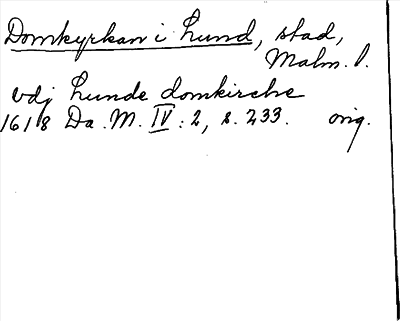 Domkyrkan i Lund, stad,
Malm. l.
vdj Lunde domkirche
1618 Da. M. IV: 2, s. 233. orig.